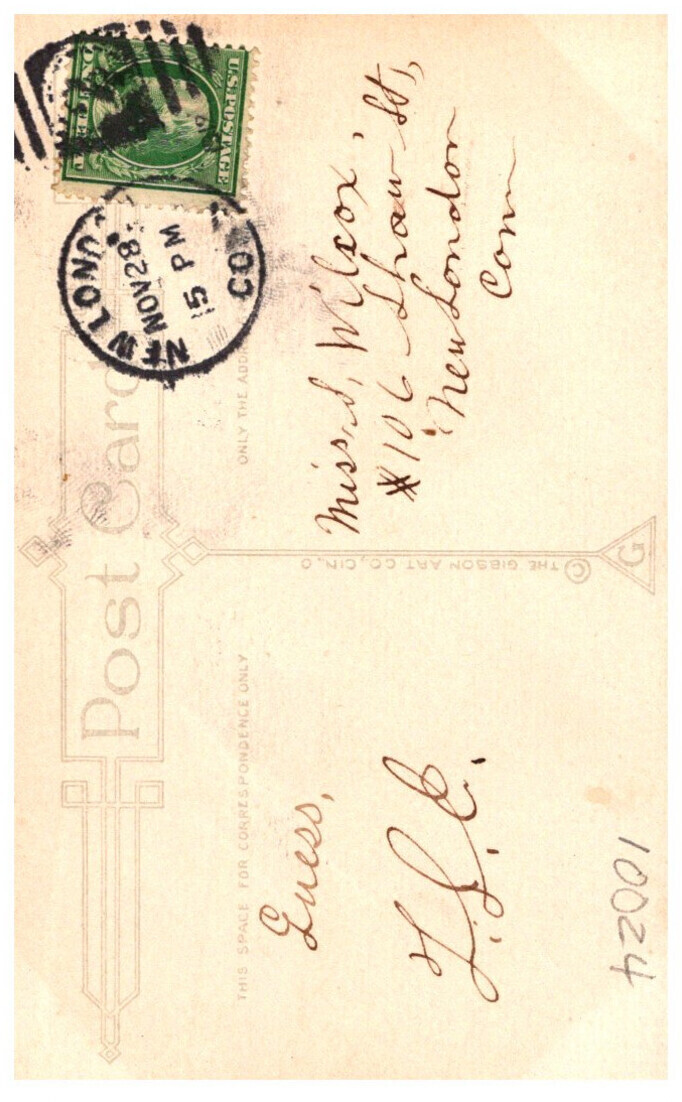 Post Card
THIS SPACE FOR CORRESPONDENCE ONLY
ONLY THE ADDR
Guess,
NEW LOND
NOV 28
5 PM
CO
U.S. POSTAGE
Miss. S, Wilcox,
#106 Shaw St,
New London
Conn
© THE GIBSON ART CO, CIN, O
G
10024